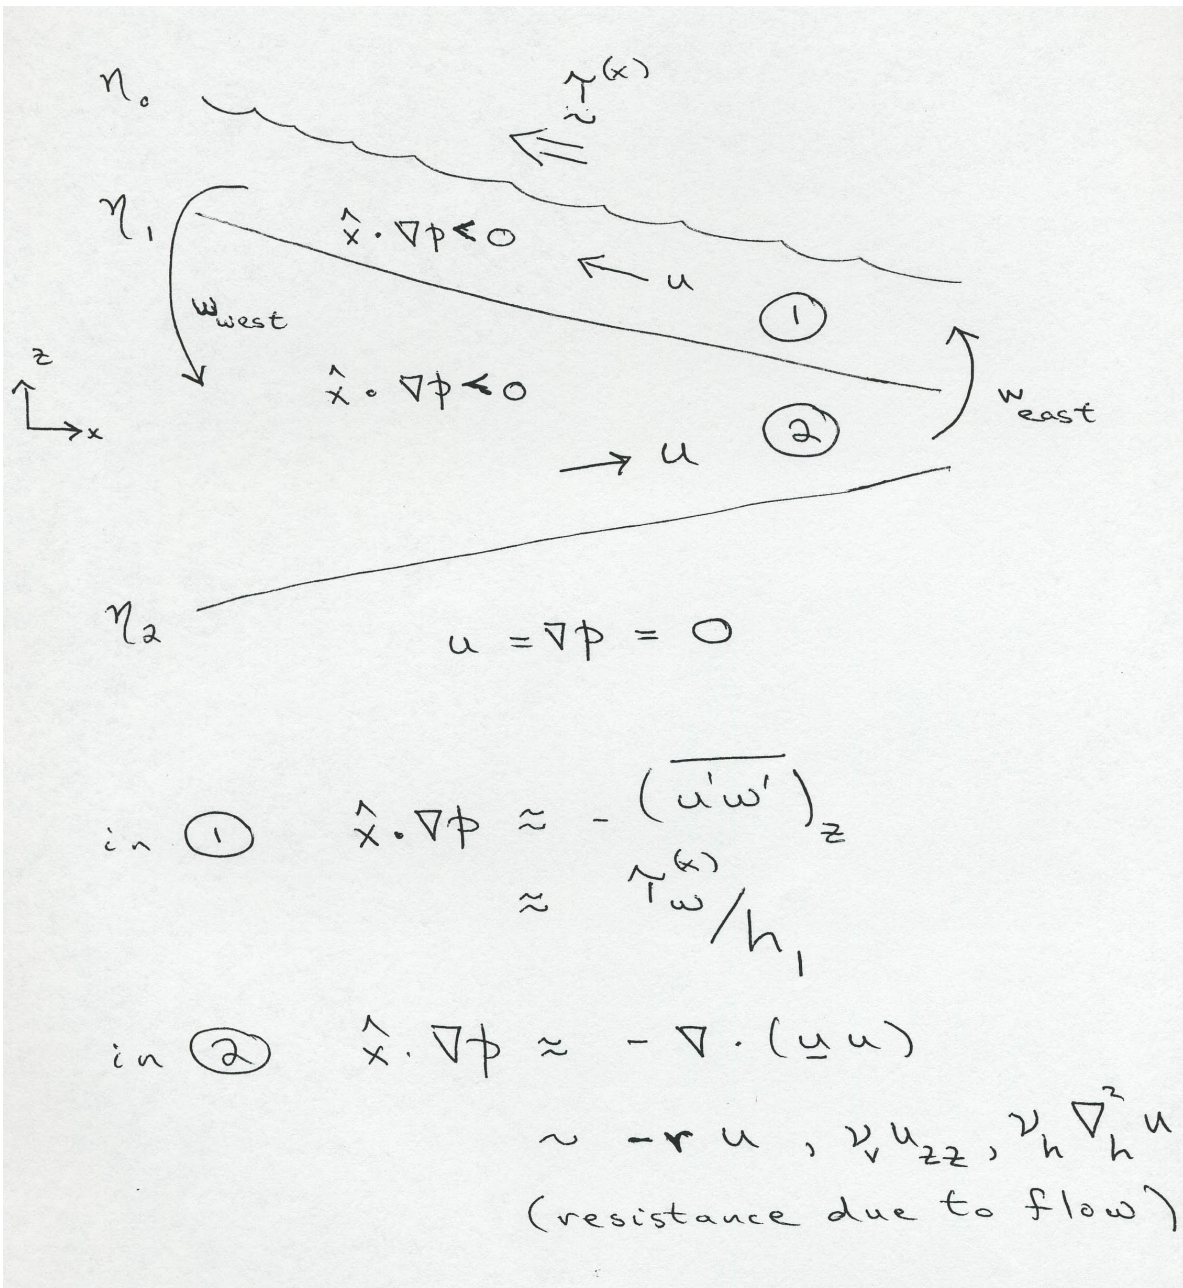 η₀
τ̰⁽ˣ⁾
η₁
x̂ · ∇p < 0
u
①
w_west
z
x
x̂ · ∇p < 0
w_east
②
u
η₂
u = ∇p = 0
in ① x̂ · ∇p ≈ - (u̅'̅w̅'̅)_z
≈ τ_w⁽ˣ⁾/h₁
in ② x̂ · ∇p ≈ - ∇ · (u̲ u)
~ -r u , ν_v u_zz , ν_h ∇_h² u
(resistance due to flow)